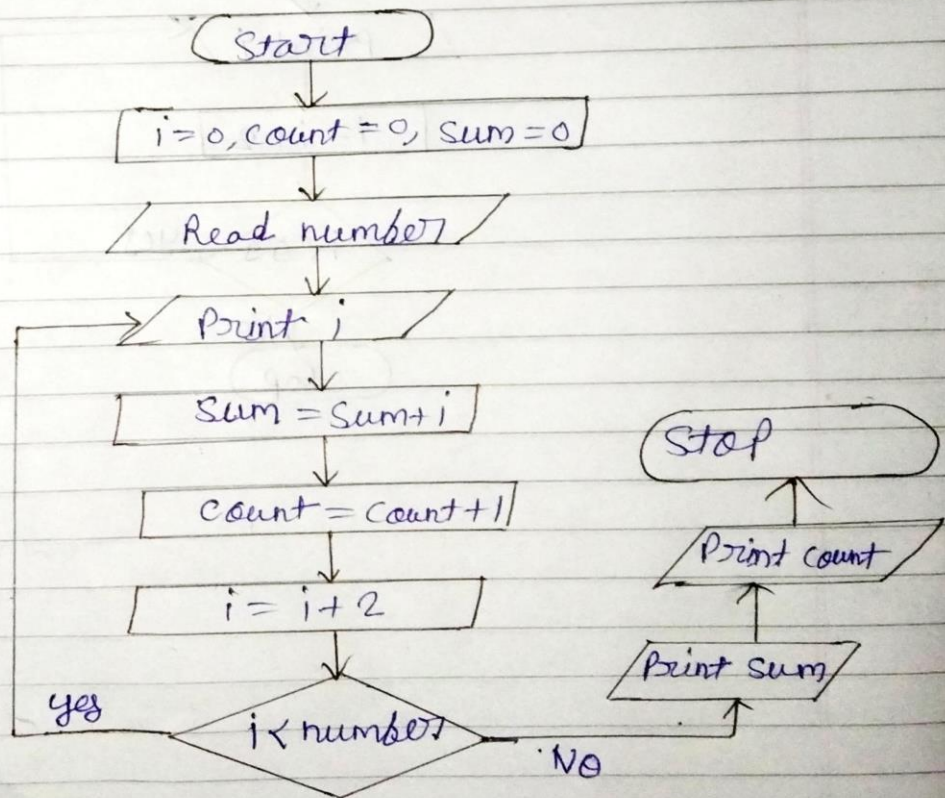 Start
i=0, count=0, sum=0
Read number
Print i
sum = sum+i
count = count+1
i = i+2
i< number
yes
No
Print sum
Print count
Stop